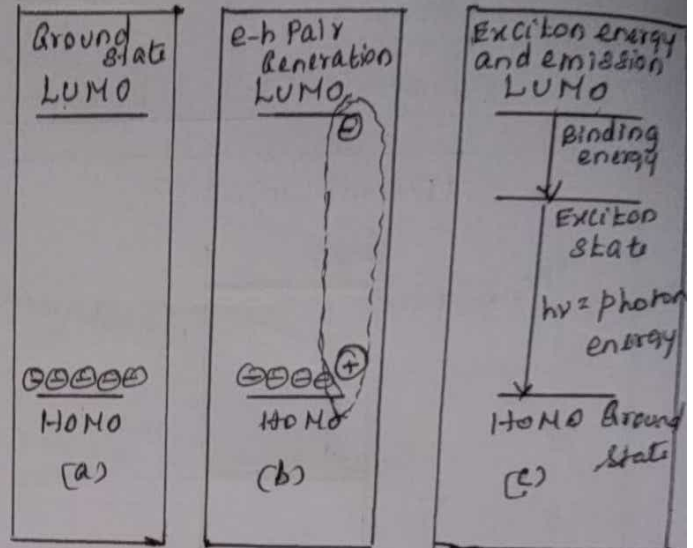 Ground
state
LUMO
⊖⊖⊖⊖⊖
HOMO
(a)
e-h Pair
Generation
LUMO
⊖
⊖⊖⊖⊖ ⊕
HOMO
(b)
Exciton energy
and emission
LUMO
Binding
energy
Exciton
state
hν = photon
energy
HOMO Ground
state
(c)